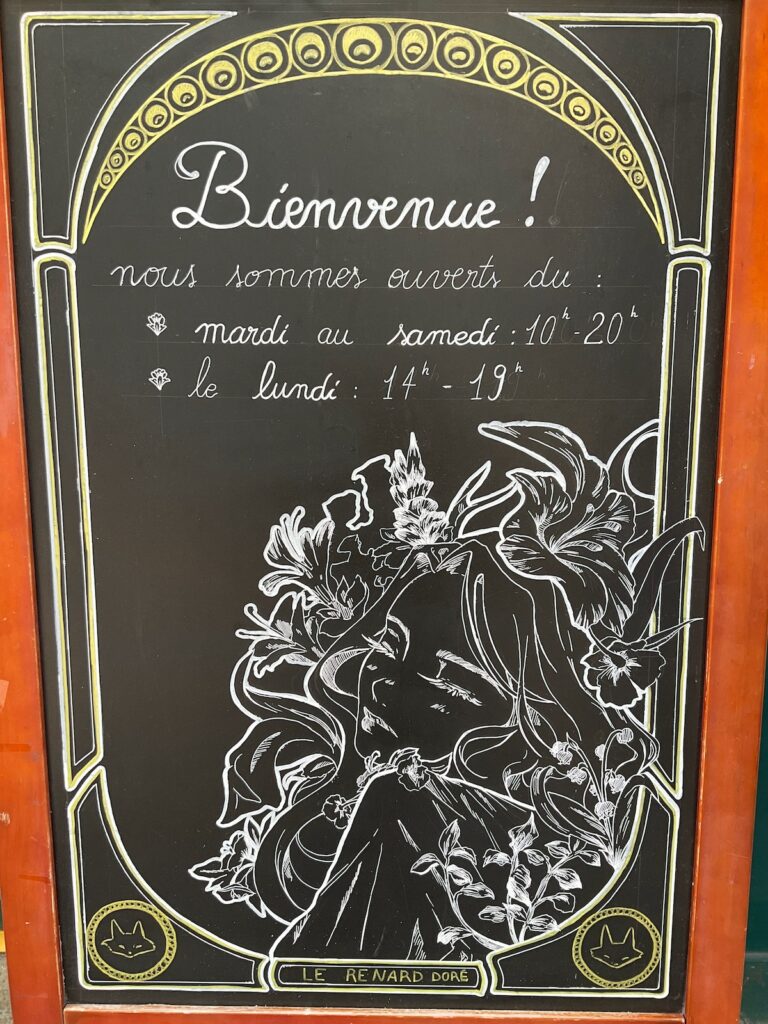 Bienvenue !
nous sommes ouverts du :
mardi au samedi : 10h - 20h
le lundi : 14h - 19h
LE RENARD DORÉ